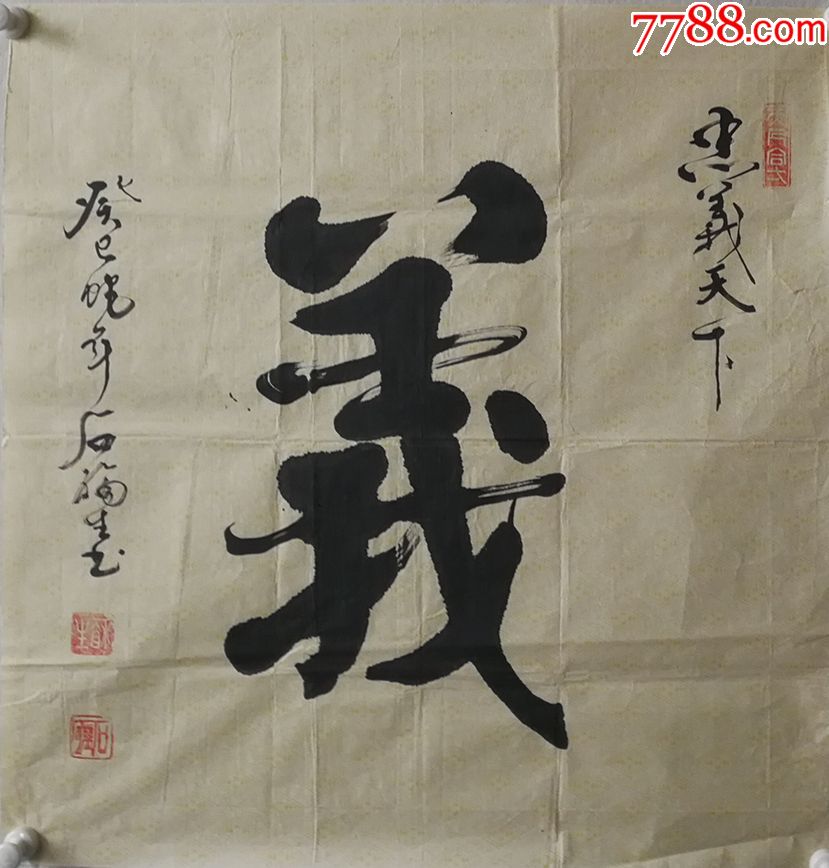 7788.com
忠義天下
義
癸巳蛇年石福生书